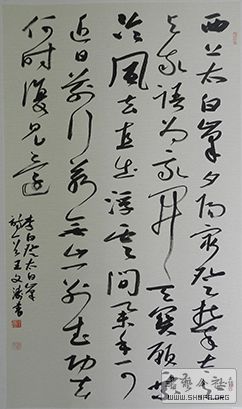 西上太白峯夕陽窮登攀太白
与我語為我開天關願乘
泠風去直出浮雲間舉手可
近月前行若無山一別武功去
何時復見還
李白登太白峯
王文書